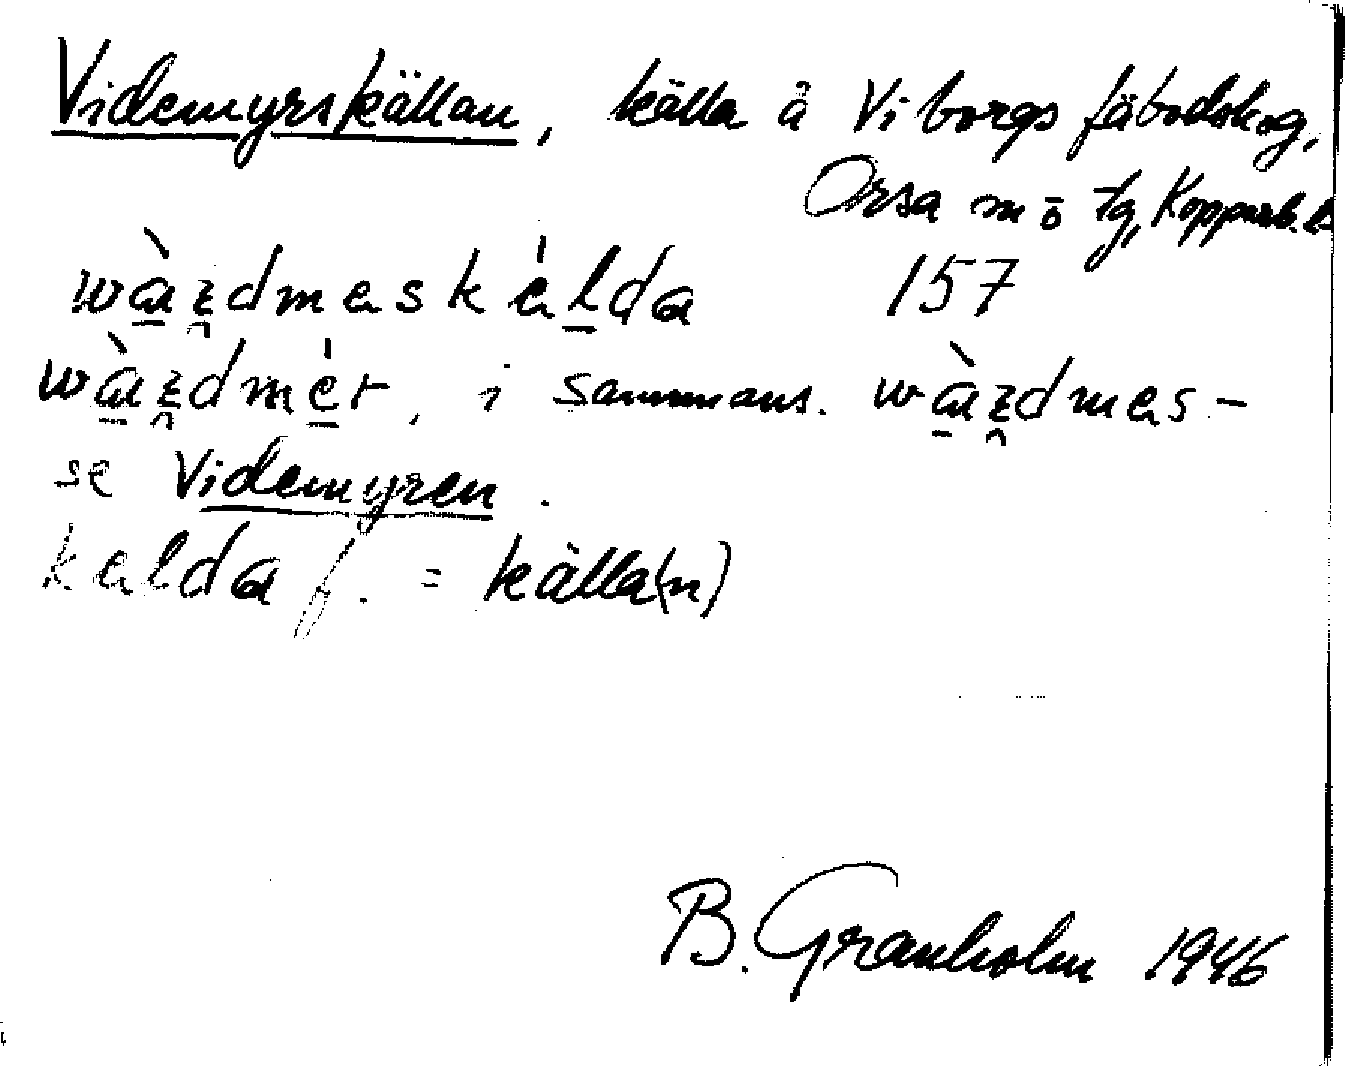 Videmyrskällan, källa å Viborgs fäbodskog,
Orsa m o tg, Kopparb. l.
wàzdmeskélda 157
wàzdmér, i sammans. wàzdmes-
se Videmyren.
kelda f. = källa(n)
B. Granholm 1946